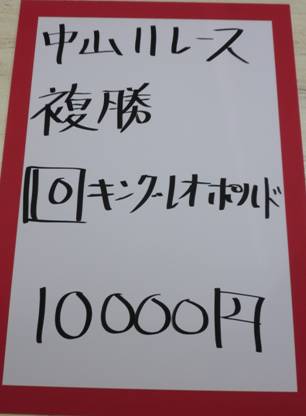 中山11レース
複勝
10 キングレオポルド
10000円